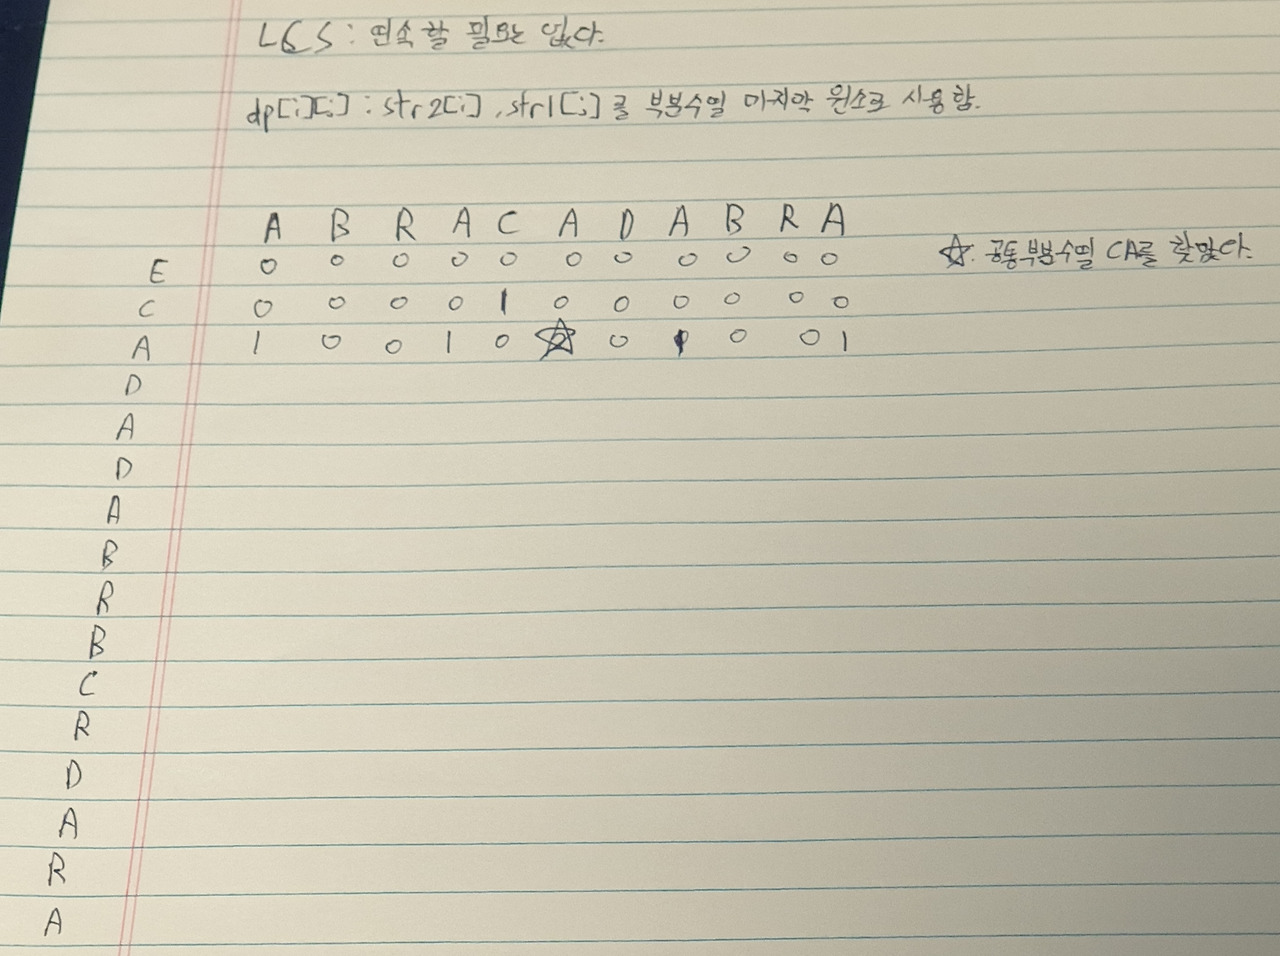 LCS : 연속할 필요는 없다.
dp[i][j] : str2[i], str1[j]를 부분수열 마지막 원소로 사용함.
A B R A C A D A B R A
E 0 0 0 0 0 0 0 0 0 0 0
☆: 공통부분수열 CA를 찾았다.
C 0 0 0 0 1 0 0 0 0 0 0
A 1 0 0 1 0 2 0 1 0 0 1
D
A
D
A
B
R
B
C
R
D
A
R
A